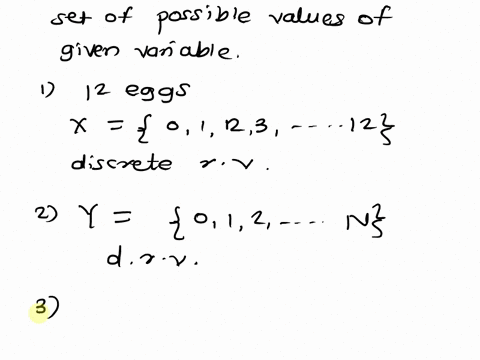 set of possible values of
given variable.
1) 12 eggs
X = { 0, 1, 12, 3, ----- 12}
discrete r.v.
2) Y = {0, 1, 2, ---- N}
d.r.v.
3)